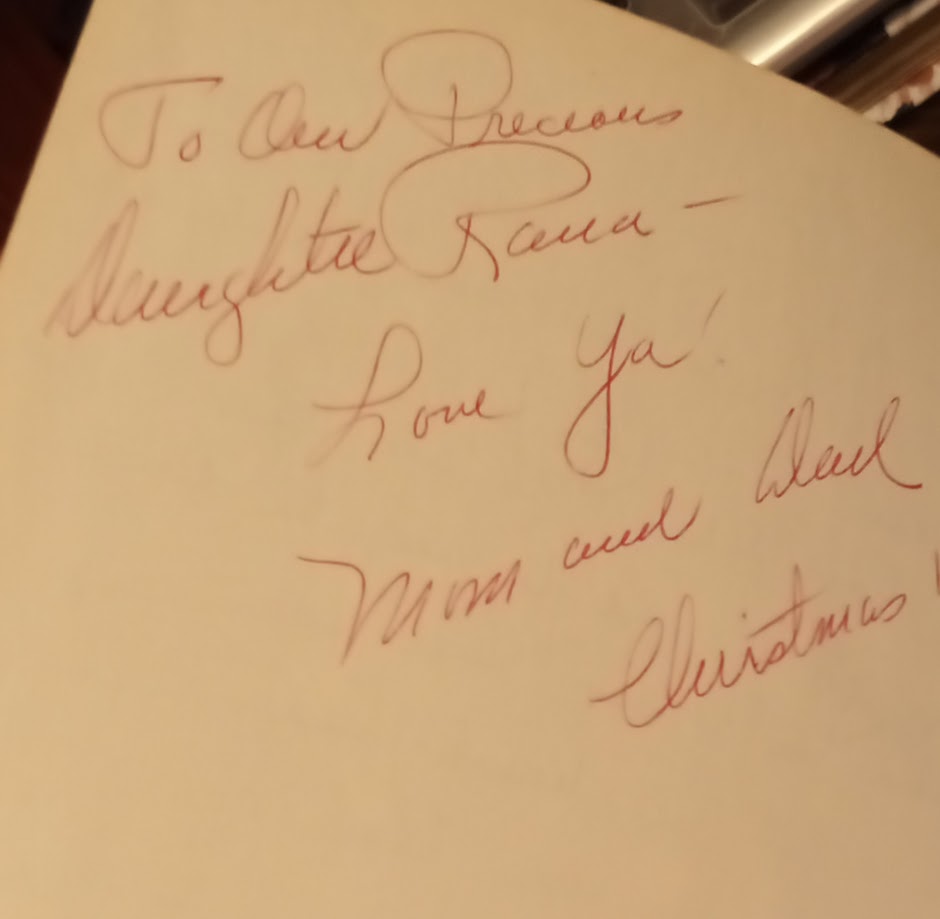 To Our Precious
Daughter Rana –
Love Ya!
Mom and Dad
Christmas